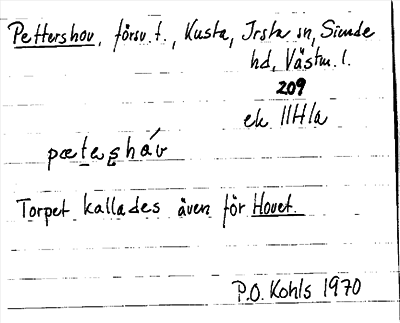 Pettershov, försv. t., Kusta, Irsta sn, Siende
hd, Västm. l.
209
ek 11H1a
pætasháv
Torpet kallades även för Hovet.
P.O. Kohls 1970